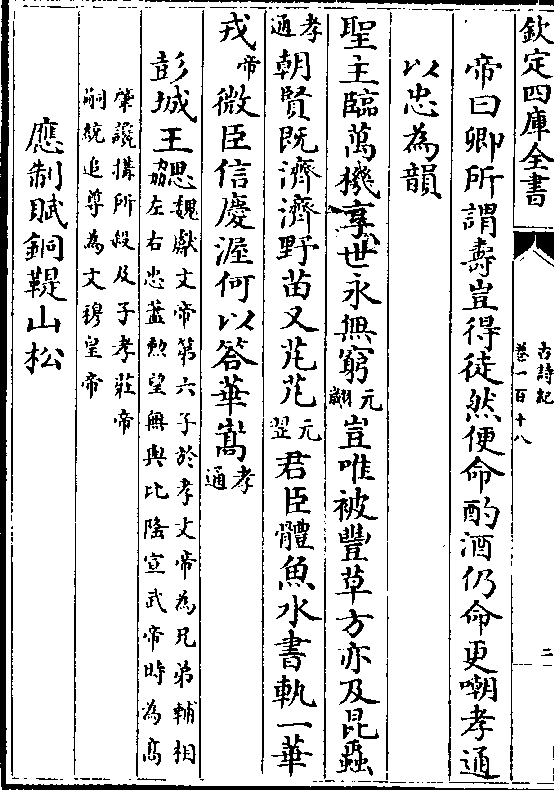 欽定四庫全書
古詩紀
卷一百十八
二
帝曰卿所謂壽豈得徒然便命酌酒仍命更嘲孝通
以忠為韻
聖主臨萬機享世永無窮元翽豈唯被豐草方亦及昆蟲
孝通朝賢既濟濟野苗又芃芃元翌君臣體魚水書軌一華
戎帝微臣信慶渥何以答華嵩孝通
彭城王勰魏獻文帝第六子於孝文帝為兄弟輔相
左右忠藎勲望無與比隆宣武帝時為高
肇讒搆所殺及子孝莊帝
嗣統追尊為文穆皇帝
應制賦銅鞮山松